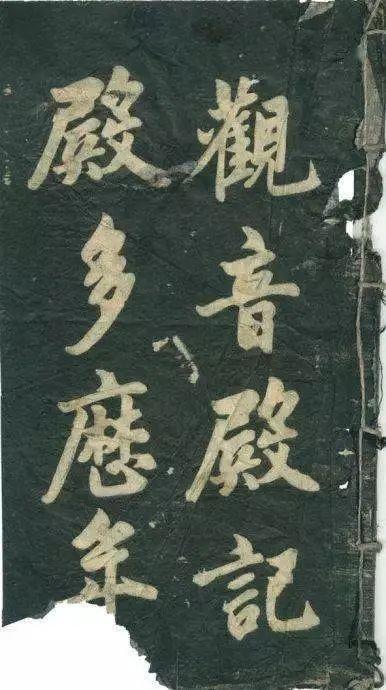 觀音殿記
殿多歷年